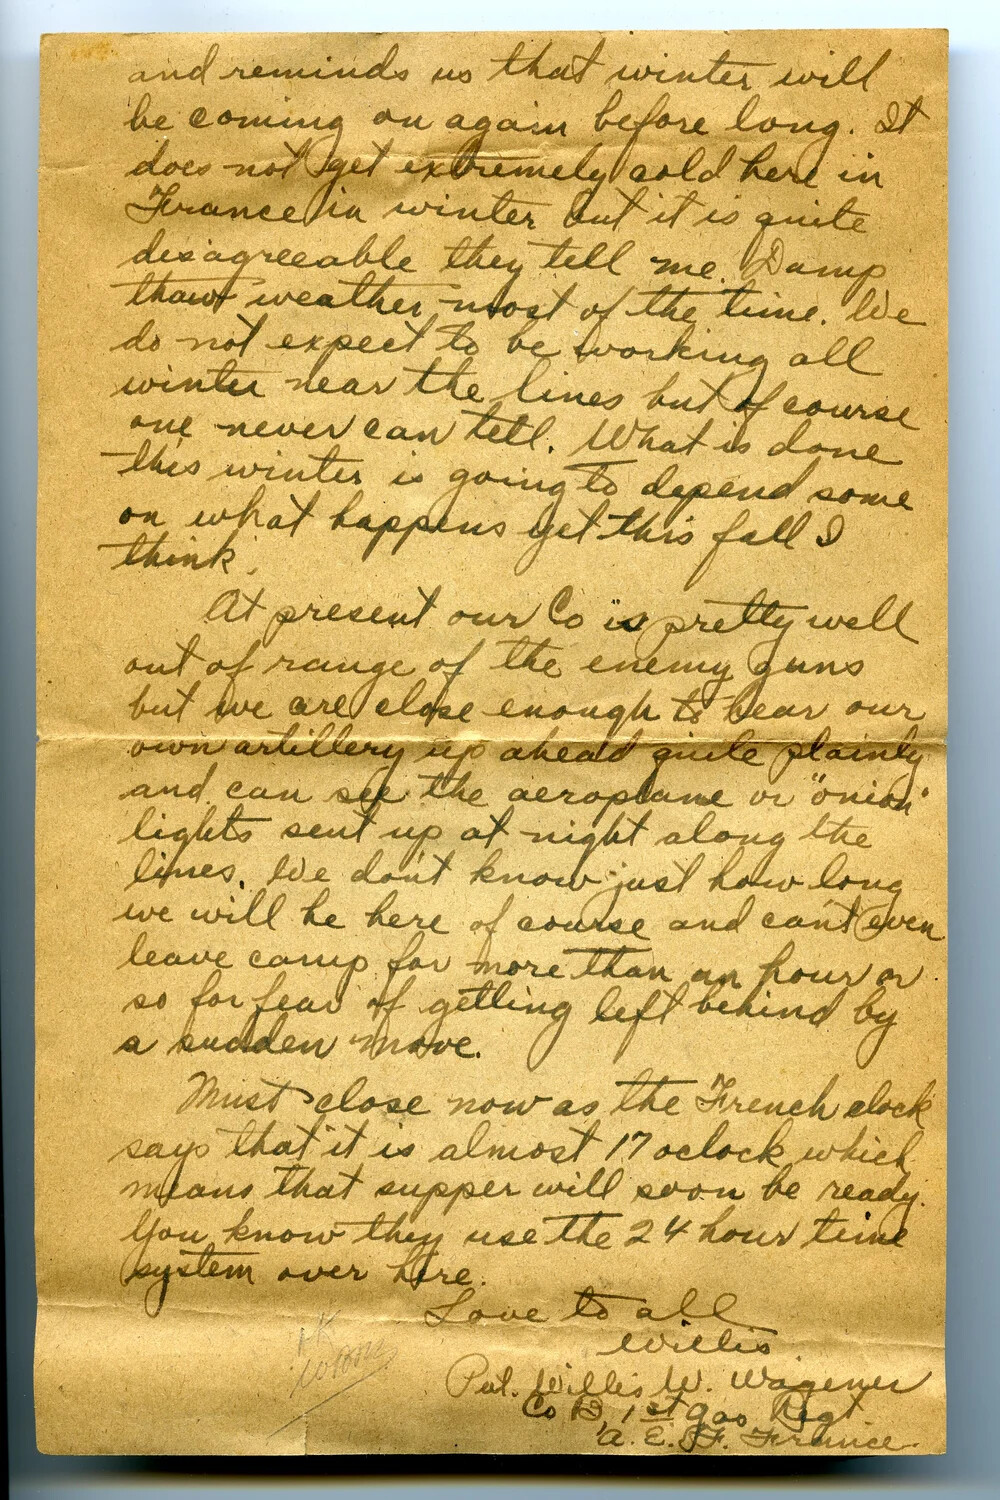 and reminds us that winter will
be coming on again before long. It
does not get extremely cold here in
France in winter but it is quite
disagreeable they tell me. Damp
thaw weather most of the time. We
do not expect to be working all
winter near the lines but of course
one never can tell. What is done
this winter is going to depend some
on what happens yet this fall I
think.
At present our Co is pretty well
out of range of the enemy guns
but we are close enough to hear our
own artillery up ahead quite plainly
and can see the aeroplane or "onion"
lights sent up at night along the
lines. We don't know just how long
we will be here of course and can't even
leave camp for more than an hour or
so for fear of getting left behind by
a sudden move.
Must close now as the French clock
says that it is almost 17 oclock which
means that supper will soon be ready.
You know they use the 24 hour time
system over here.
Love to all
Willis
Pvt. Willis W. Wagener
Co B, 1st Gas Regt
A. E. F. France.